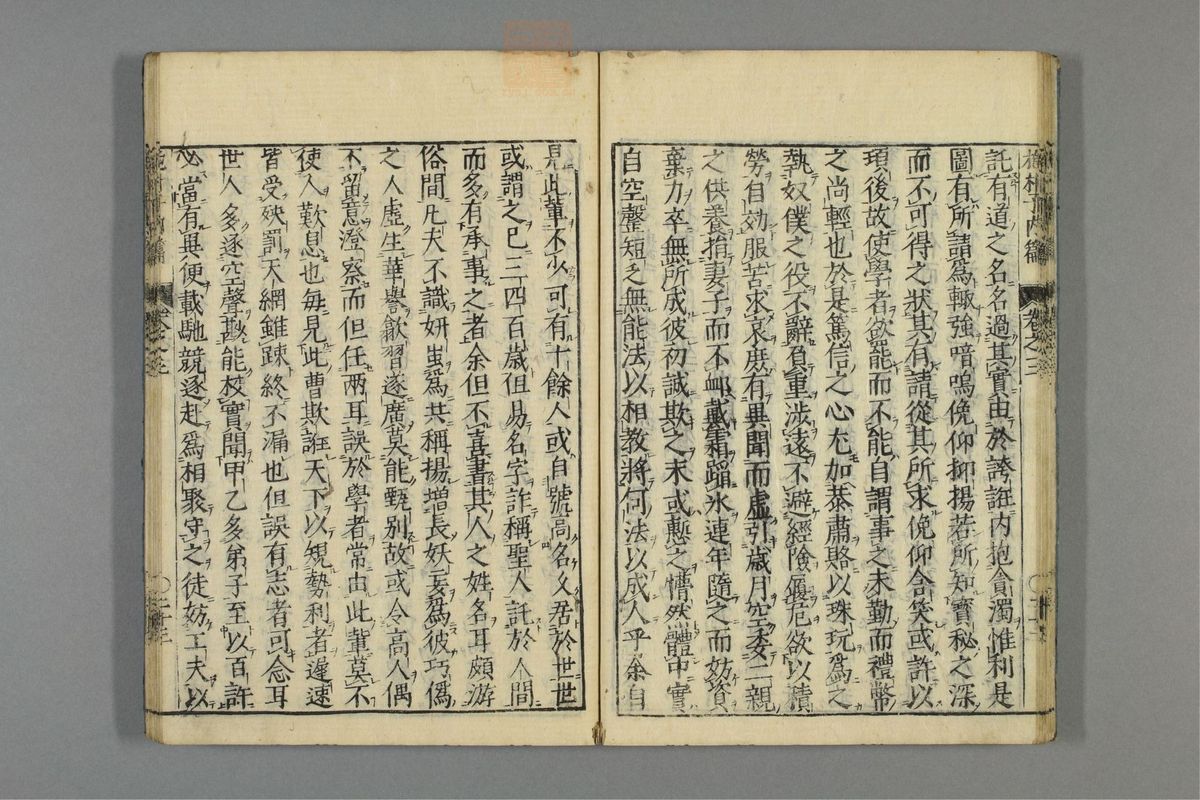 託有道之名名過其實由於誇誑内抱貪濁惟利是
圖有所請爲輙強喑嗚俛仰抑揚若所知寶秘之深
而不可得之狀其有請從其所求俛仰含笑或許以
頊後故使學者欲罷而不能自謂事之未勤而禮幣
之尚輕也於是篤信之心尤加恭肅賂以珠玩爲之
執奴僕之役不辭負重涉遠不避經險履危欲以積
勞自効服苦求哀庶有異聞而虚引歳月空委二親
之供養捐妻子而不䘏戴霜蹈氷連年隨之而妨資
棄力卒無所成彼初誠欺之末或慙之懵然體中實
自空罄短乏無能法以相教將何法以成人乎余自
見此輩不少可有十餘人或自號高名久居於世世
或謂之已三四百歳但易名字詐稱聖人託於人間
而多有承事之者余但不喜書其人之姓名耳頗游
俗間凡夫不識妍蚩爲共稱揚增長妖妄爲彼巧僞
之人虚生華譽歙習遂廣莫能甄别故或令高人偶
不留意澄察而但任兩耳誤於學者常由此輩莫不
使人歎息也毎見此曹欺誑天下以規勢利者遲速
皆受殃罰天網雖踈終不漏也但誤有志者可念耳
世人多逐空聲尠能校實聞甲乙多弟子至以百許
必當有異便載馳競逐赴爲相聚守之徒妨工夫以